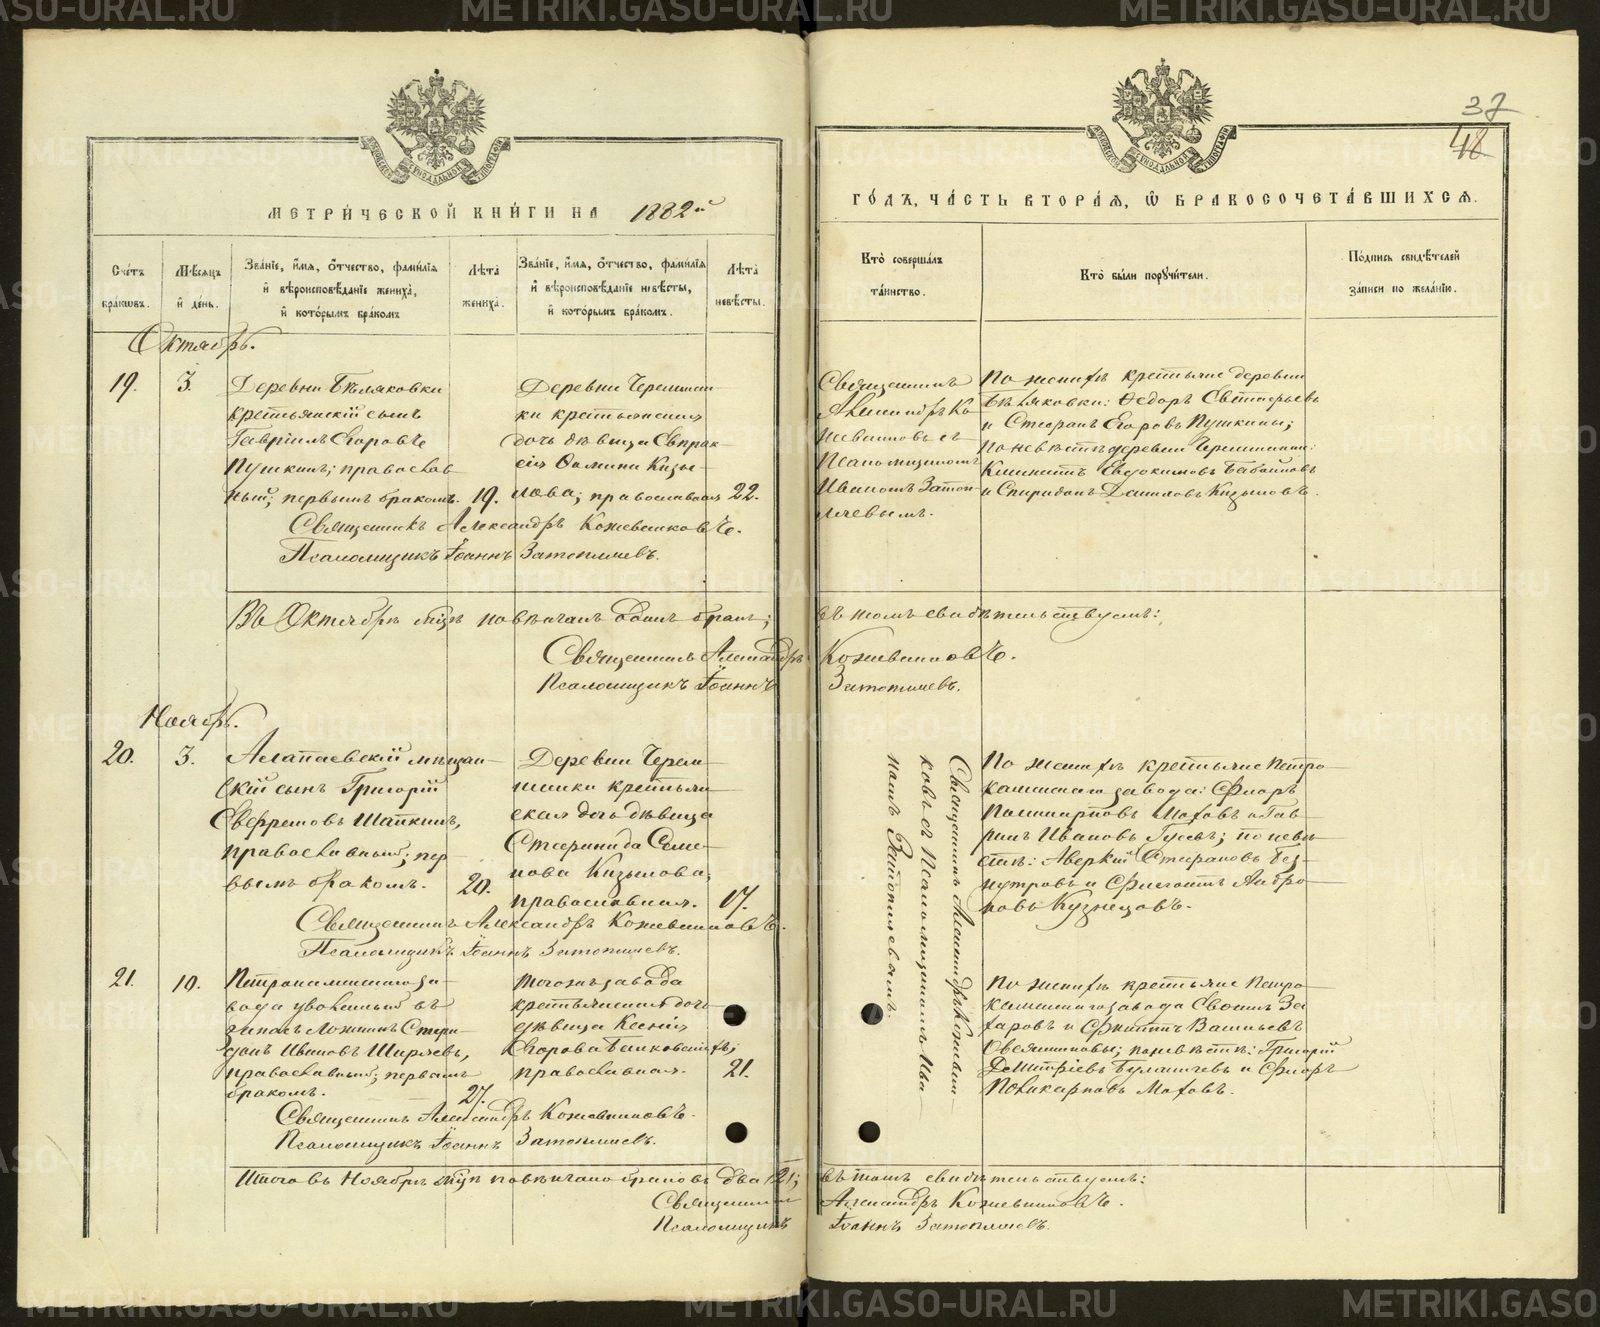 37
48
МЕТРИЧЕСКОЙ КНИГИ НА 1882й
ГОДЪ, ЧАСТЬ ВТОРАЯ, Ѿ БРАКОСОЧЕТАВШИХСЯ.
Счетъ браковъ.
Мѣсяцъ и день.
Званіе, имя, отчество, фамилія
и вѣроисповѣданіе жениха,
и которымъ бракомъ
Лѣта
жениха.
Званіе, имя, отчество, фамилія
и вѣроисповѣданіе невѣсты,
и которымъ бракомъ.
Лѣта
невѣсты.
Кто совершалъ
таинство.
Кто были поручители.
Подпись свидѣтелей
записи по желанію.
Октябрь.
19.
3.
Деревни Бѣляковки
крестьянскій сынъ
Гавріилъ Егоровъ
Пушкинъ; православ
ный; первымъ бракомъ.
19.
Деревни Черемши
ки крестьянская
дочь дѣвица Евпрак
сія Ѳомина Кизи
лова; православная
22.
Священникъ
Александръ Ко
жевниковъ съ
Псаломщикомъ
Иваномъ Затоп
ляевымъ.
По женихѣ крестьяне деревни
Бѣляковки: Ѳедоръ
и Стефанъ Егоровъ Пушкины;
по невѣстѣ деревни
Климентъ Евдокимовъ
и Спиридонъ Даниловъ
Священникъ Александръ Кожевниковъ.
Псаломщикъ Іоаннъ Затопляевъ.
Въ Октябрѣ мѣсяцѣ повѣнчанъ одинъ бракъ; въ томъ свидѣтельствуемъ:
Священникъ Александръ Кожевниковъ.
Псаломщикъ Іоаннъ Затопляевъ.
Ноябрь.
20.
3.
Алапаевскій мѣщан
скій сынъ Григорій
Шапкинъ,
православный; пер
вымъ бракомъ.
20.
Деревни Черем
шанки крестьян
ская дочь дѣвица
Стефанида Семе
нова Кизилова;
православная.
17.
Священникъ Александръ Кожевни
ковъ съ Псаломщикомъ Ива
номъ Затопляевымъ.
По женихѣ крестьяне Петро
каменскаго завода: Флоръ
Поликарповъ Моховъ и Гав
рилъ Ивановъ Гусевъ; по невѣ
стѣ: Аверкій Стефановъ
и
Кузнецовъ.
Священникъ Александръ Кожевниковъ.
Псаломщикъ Іоаннъ Затопляевъ.
21.
10.
Петрокаменскаго за
вода уволенный въ
запасъ
Ивановъ Ширяевъ,
православный; первымъ
бракомъ.
27.
Тогожъ завода
крестьянская дочь
дѣвица Ксенія
Егорова
православная.
21.
По женихѣ крестьяне Петро
каменскаго завода За
харовъ и Филиппъ Васильевъ
Овсянниковы; по невѣстѣ: Григорій
Дмитріевъ и Флоръ
Поликарповъ Моховъ.
Священникъ Александръ Кожевниковъ.
Псаломщикъ Іоаннъ Затопляевъ.
Итого въ Ноябрѣ мѣсяцѣ повѣнчано браковъ два /2/; въ томъ свидѣтельствуемъ:
Священникъ Александръ Кожевниковъ.
Псаломщикъ Іоаннъ Затопляевъ.
METRIKI.GASO-URAL.RU